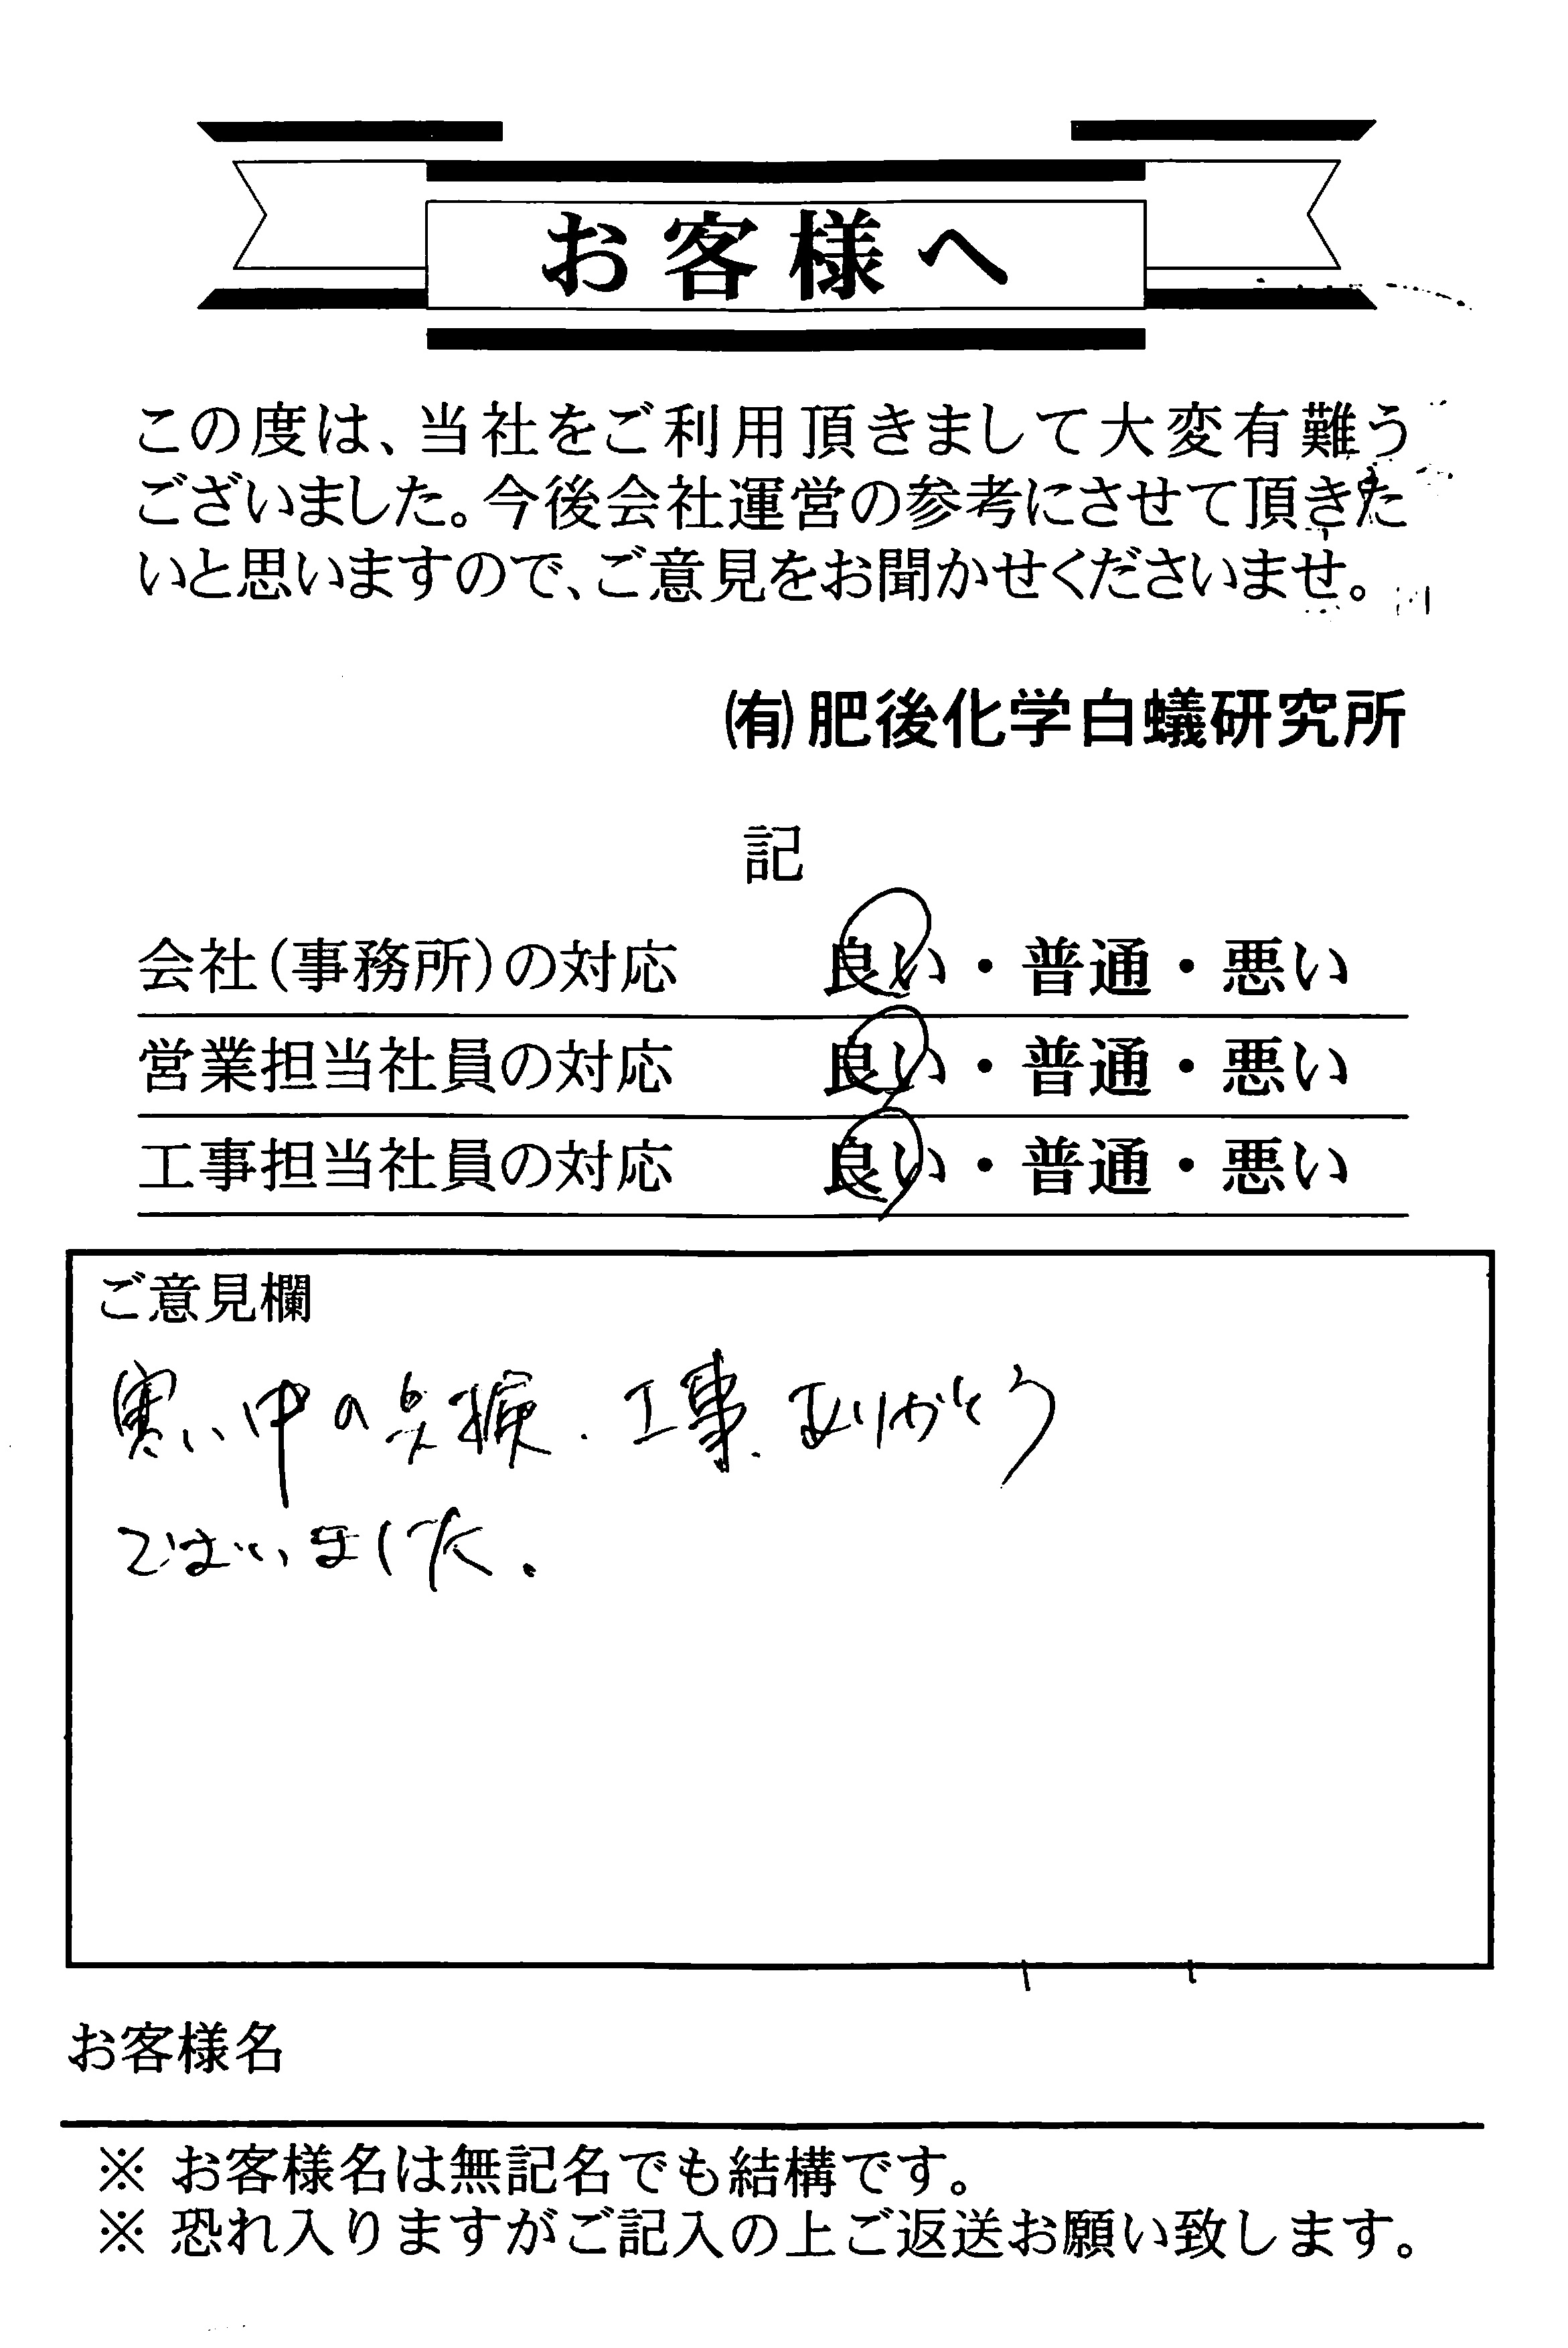 お客様へ
この度は、当社をご利用頂きまして大変有難う
ございました。今後会社運営の参考にさせて頂きた
いと思いますので、ご意見をお聞かせくださいませ。
㈲肥後化学白蟻研究所
記
会社(事務所)の対応 良い・普通・悪い
営業担当社員の対応 良い・普通・悪い
工事担当社員の対応 良い・普通・悪い
ご意見欄
寒い中の点検、工事、ありがとう
ございました。
お客様名
※ お客様名は無記名でも結構です。
※ 恐れ入りますがご記入の上ご返送お願い致します。